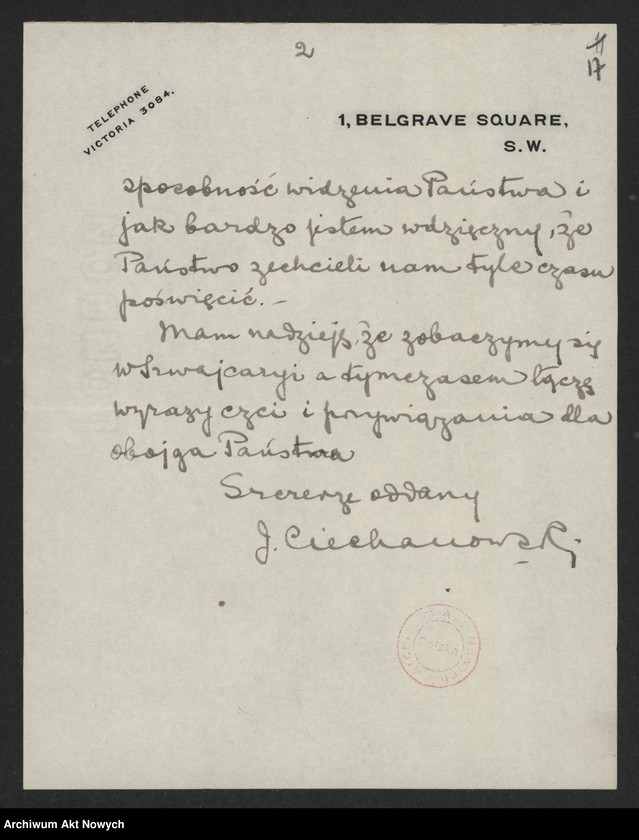 2
11
17
TELEPHONE
VICTORIA 3084.
1, BELGRAVE SQUARE,
S.W.
sposobność widzenia Państwa i
jak bardzo jestem wdzięczny, że
Państwo zechcieli nam tyle czasu
poświęcić. –
Mam nadzieję, że zobaczymy się
w Szwajcaryi a tymczasem łączę
wyrazy czci i przywiązania dla
obojga Państwa
Szczerze oddany
J. Ciechanowski
Polska
Archiwum Akt Nowych